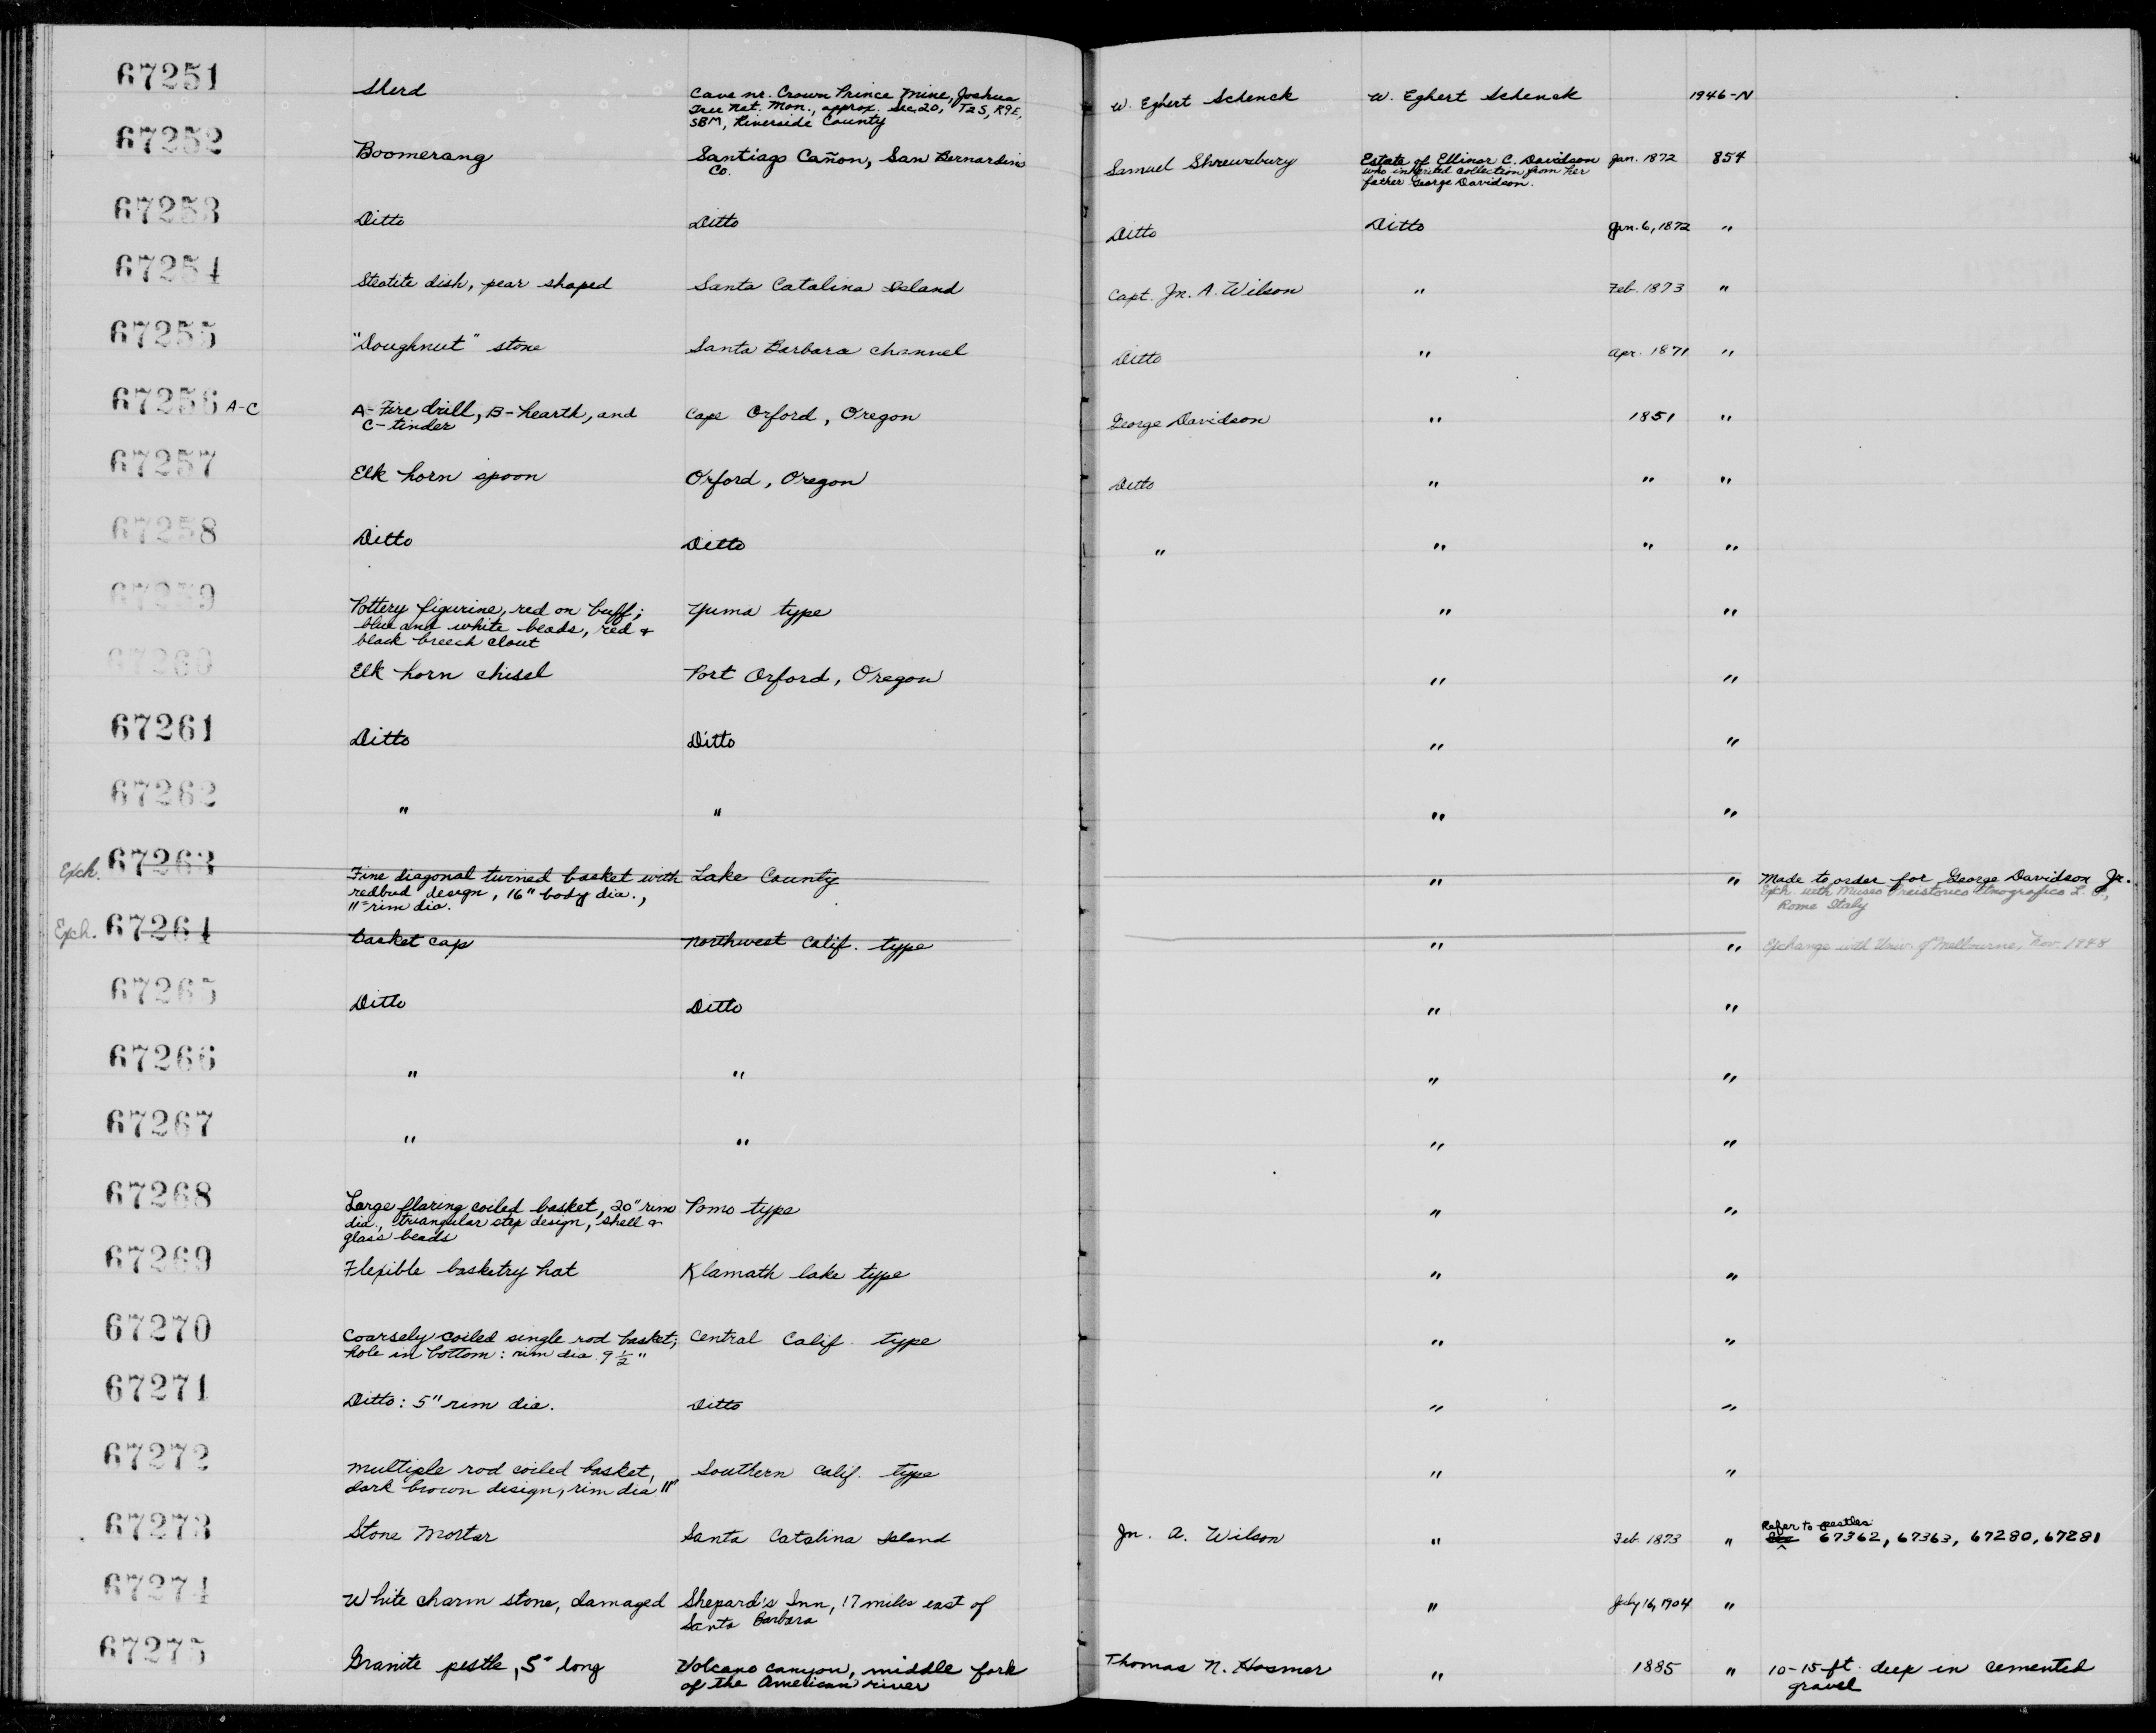 67251 Sherd Cave nr. Crown Prince Mine, Joshua W. Egbert Schenck W. Egbert Schenck 1946-N
Tree Nat. Mon., approx. Sec. 20, T2S, R9E,
SBM, Riverside County
67252 Boomerang Santiago Cañon, San Bernardino Samuel Shrewsbury Estate of Ellinor C. Davidson Jan. 1872 854
Co. who inherited collection from her
father George Davidson.
67253 Ditto Ditto Ditto Ditto Jan. 6, 1872 "
67254 Steatite dish, pear shaped Santa Catalina Island Capt. Jn. A. Wilson " Feb. 1873 "
67255 "Doughnut" stone Santa Barbara channel Ditto " Apr. 1871 "
67256 A-C A- Fire drill, B- hearth, and Cape Orford, Oregon George Davidson " 1851 "
C- tinder
67257 Elk horn spoon Orford, Oregon Ditto " " "
67258 Ditto Ditto " " " "
67259 Pottery figurine, red on buff; Yuma type " "
blue and white beads, red &
black breech clout
67260 Elk horn chisel Port Orford, Oregon " "
67261 Ditto Ditto " "
67262 " " " "
Exch. 67263 Fine diagonal twined basket with Lake County " " Made to order for George Davidson Jr.
redbud design, 16" body dia., Exch. with Museo Preistorico Etnografico L. P.,
11" rim dia. Rome Italy
Exch. 67264 basket cap Northwest Calif. type " " Exchange with Univ. of Melbourne, Nov. 1948
67265 Ditto Ditto " "
67266 " " " "
67267 " " " "
67268 Large flaring coiled basket, 20" rim Pomo type " "
dia., triangular step design, shell &
glass beads
67269 Flexible basketry hat Klamath lake type " "
67270 Coarsely coiled single rod basket; Central Calif. type " "
hole in bottom: rim dia. 9 1/2"
67271 Ditto: 5" rim dia. Ditto " "
67272 Multiple rod coiled basket, Southern Calif. type " "
dark brown design, rim dia. 11"
67273 Stone Mortar Santa Catalina Island Jn. A. Wilson " Feb. 1873 " Refer to pestles
67362, 67363, 67280, 67281
67274 White charm stone, damaged Shepard's Inn, 17 miles east of " July 16, 1904 "
Santa Barbara
67275 Granite pestle, 5" long Volcano canyon, middle fork Thomas N. Hosmer " 1885 " 10-15 ft. deep in cemented
of the American river gravel